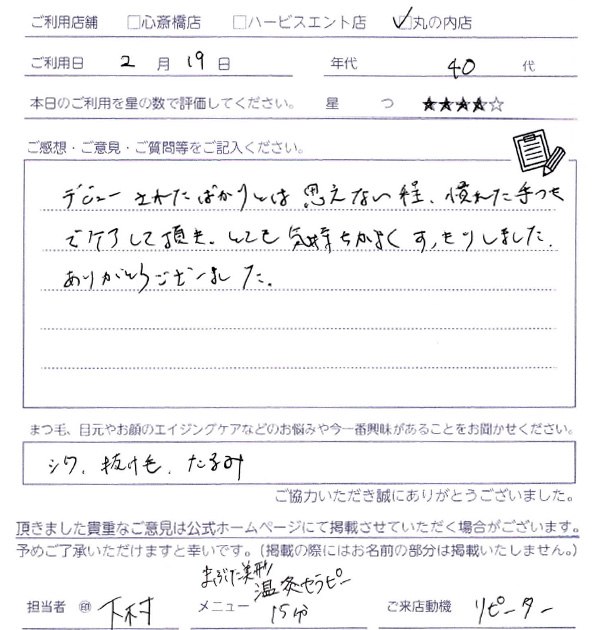 ご利用店舗 □心斎橋店 □ハービスエント店 ☑丸の内店
ご利用日 2 月 19 日 年代 40 代
本日のご利用を星の数で評価してください。 星 つ ★★★★☆
ご感想・ご意見・ご質問等をご記入ください。
デビューされたばかりとは思えない程、慣れた手つき
でケアして頂き、とても気持ちがよくすっきりしました。
ありがとうございました。
まつ毛、目元やお顔のエイジングケアなどのお悩みや今一番興味があることをお聞かせください。
シワ、抜け毛、たるみ
ご協力いただき誠にありがとうございました。
頂きました貴重なご意見は公式ホームページにて掲載させていただく場合がございます。
予めご了承いただけますと幸いです。(掲載の際にはお名前の部分は掲載いたしません。)
まぶた美形
温灸セラピー
担当者 ㊞ 下村 メニュー 15分 ご来店動機 リピーター